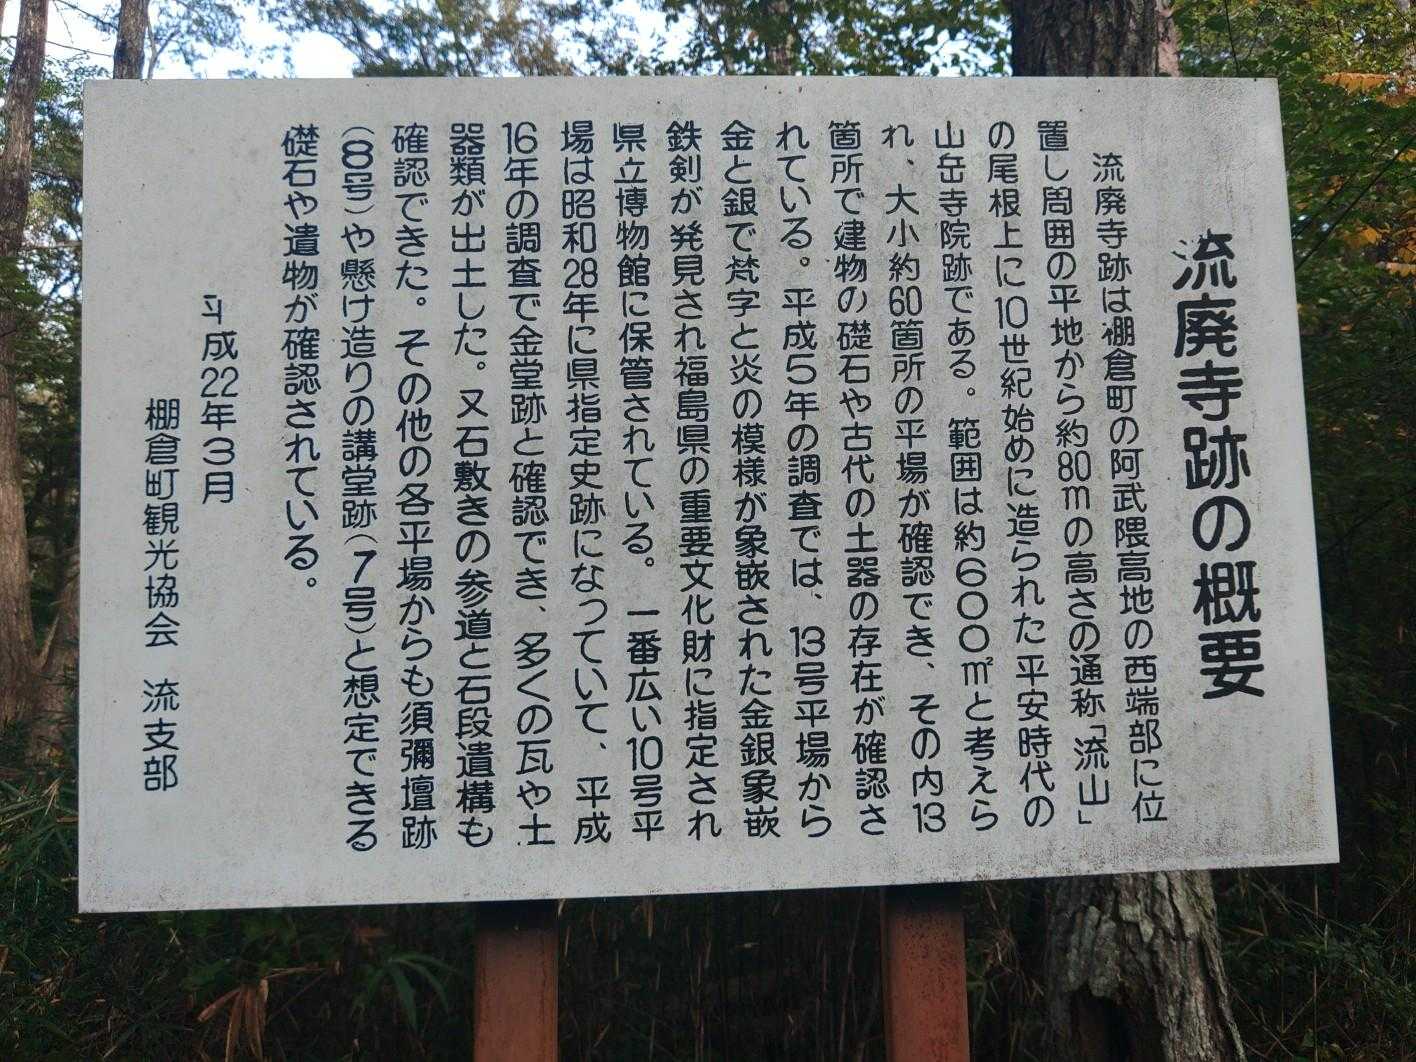 流廃寺跡の概要
流廃寺跡は棚倉町の阿武隈高地の西端部に位
置し周囲の平地から約80mの高さの通称「流山」
の尾根上に10世紀始めに造られた平安時代の
山岳寺院跡である。範囲は約600㎡と考えら
れ、大小約60箇所の平場が確認でき、その内13
箇所で建物の礎石や古代の土器の存在が確認さ
れている。平成5年の調査では、13号平場から
金と銀で梵字と炎の模様が象嵌された金銀象嵌
鉄剣が発見され福島県の重要文化財に指定され
県立博物館に保管されている。一番広い10号平
場は昭和28年に県指定史跡になっていて、平成
16年の調査で金堂跡と確認でき、多くの瓦や土
器類が出土した。又石敷きの参道と石段遺構も
確認できた。その他の各平場からも須彌壇跡
(8号)や懸け造りの講堂跡(7号)と想定できる
礎石や遺物が確認されている。
平成22年3月
棚倉町観光協会 流支部